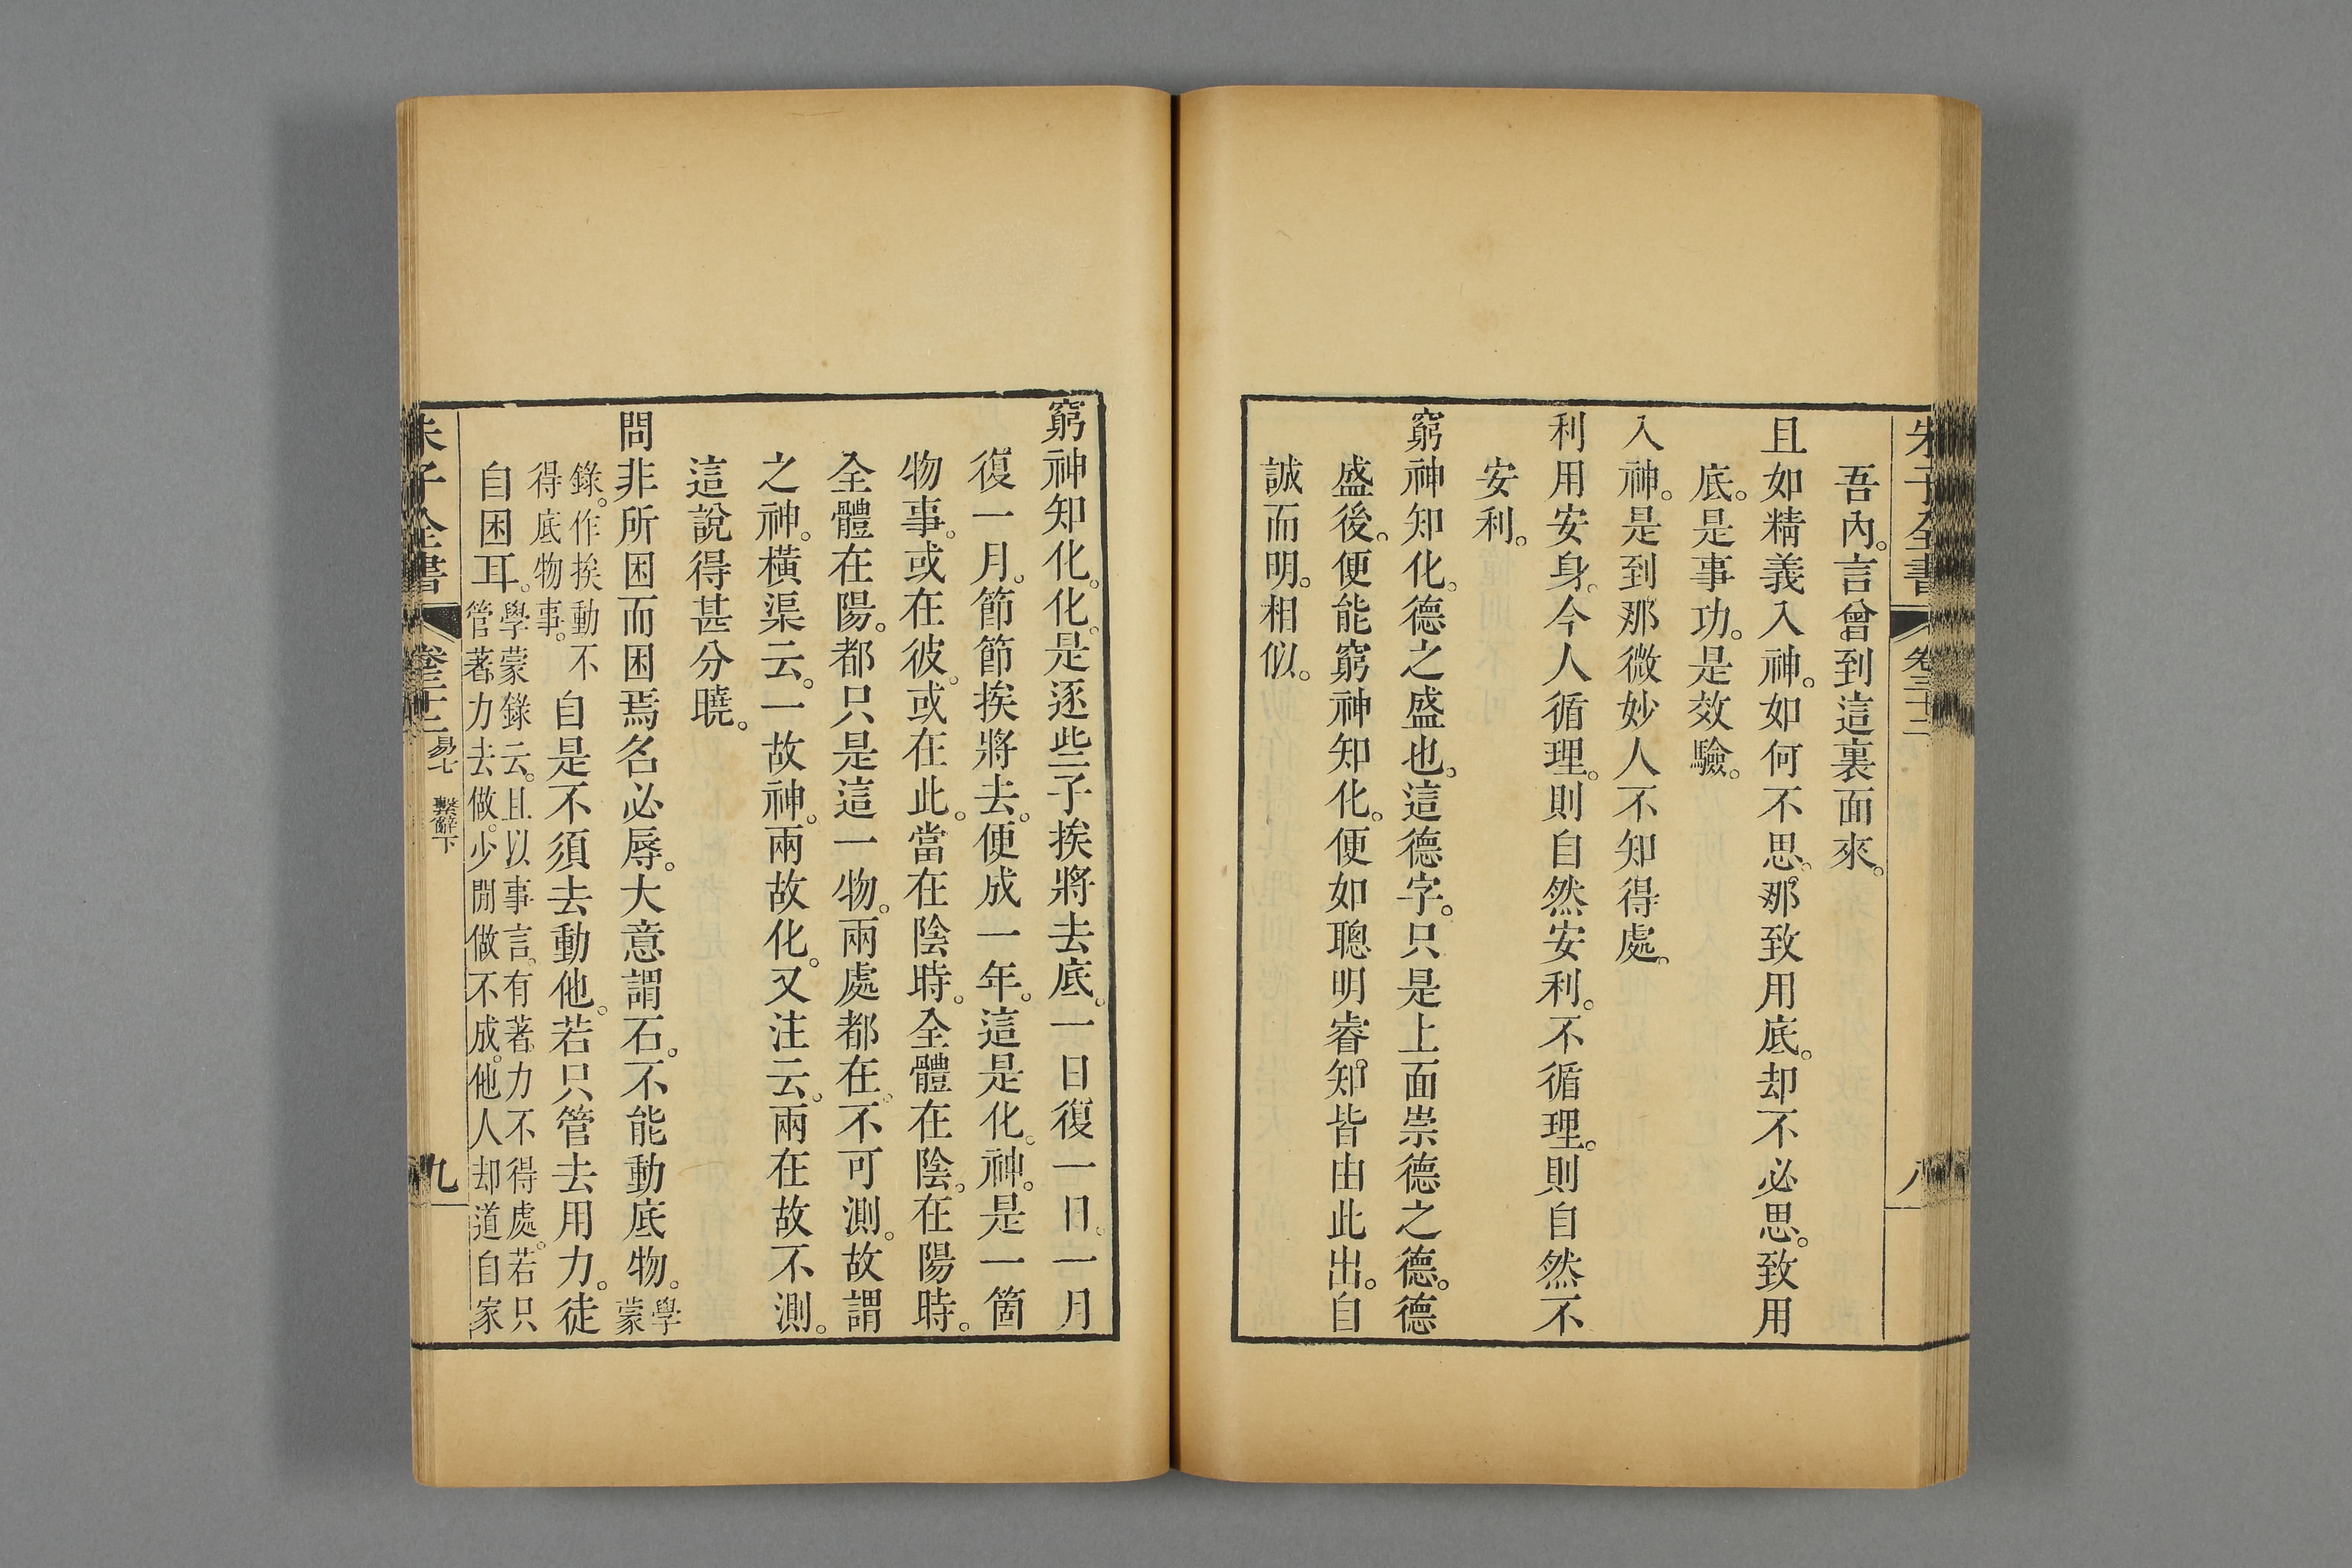 朱子全書 卷三十二 八
吾內。言曾到這裏面來。
且如精義入神。如何不思。那致用底。却不必思。致用
底。是事功。是效驗。
入神。是到那微妙人不知得處。
利用安身。今人循理。則自然安利。不循理。則自然不
安利。
窮神知化。德之盛也。這德字。只是上面崇德之德。德
盛後。便能窮神知化。便如聰明睿知。皆由此出。自
誠而明。相似。
窮神知化。化。是逐些子挨將去底。一日復一日。一月
復一月。節節挨將去。便成一年。這是化。神。是一箇
物事。或在彼。或在此。當在陰時。全體在陰。在陽時。
全體在陽。都只是這一物。兩處都在。不可測。故謂
之神。橫渠云。一故神。兩故化。又注云。兩在故不測。
這說得甚分曉。
問非所困而困焉名必辱。大意謂石。不能動底物。學
蒙
錄。作挨動不
得底物事。
自是不須去動他。若只管去用力。徒
自困耳。
學蒙錄云。且以事言。有著力不得處。若只
管著力去做。少間做不成。他人却道自家
朱子全書 卷三十二 易七 繫辭下 九